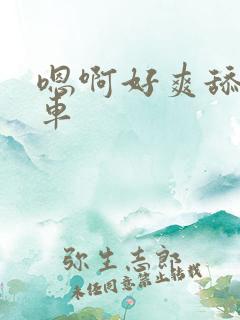 嗯啊好爽舔
車
弥生志郎
未经同意禁止转载